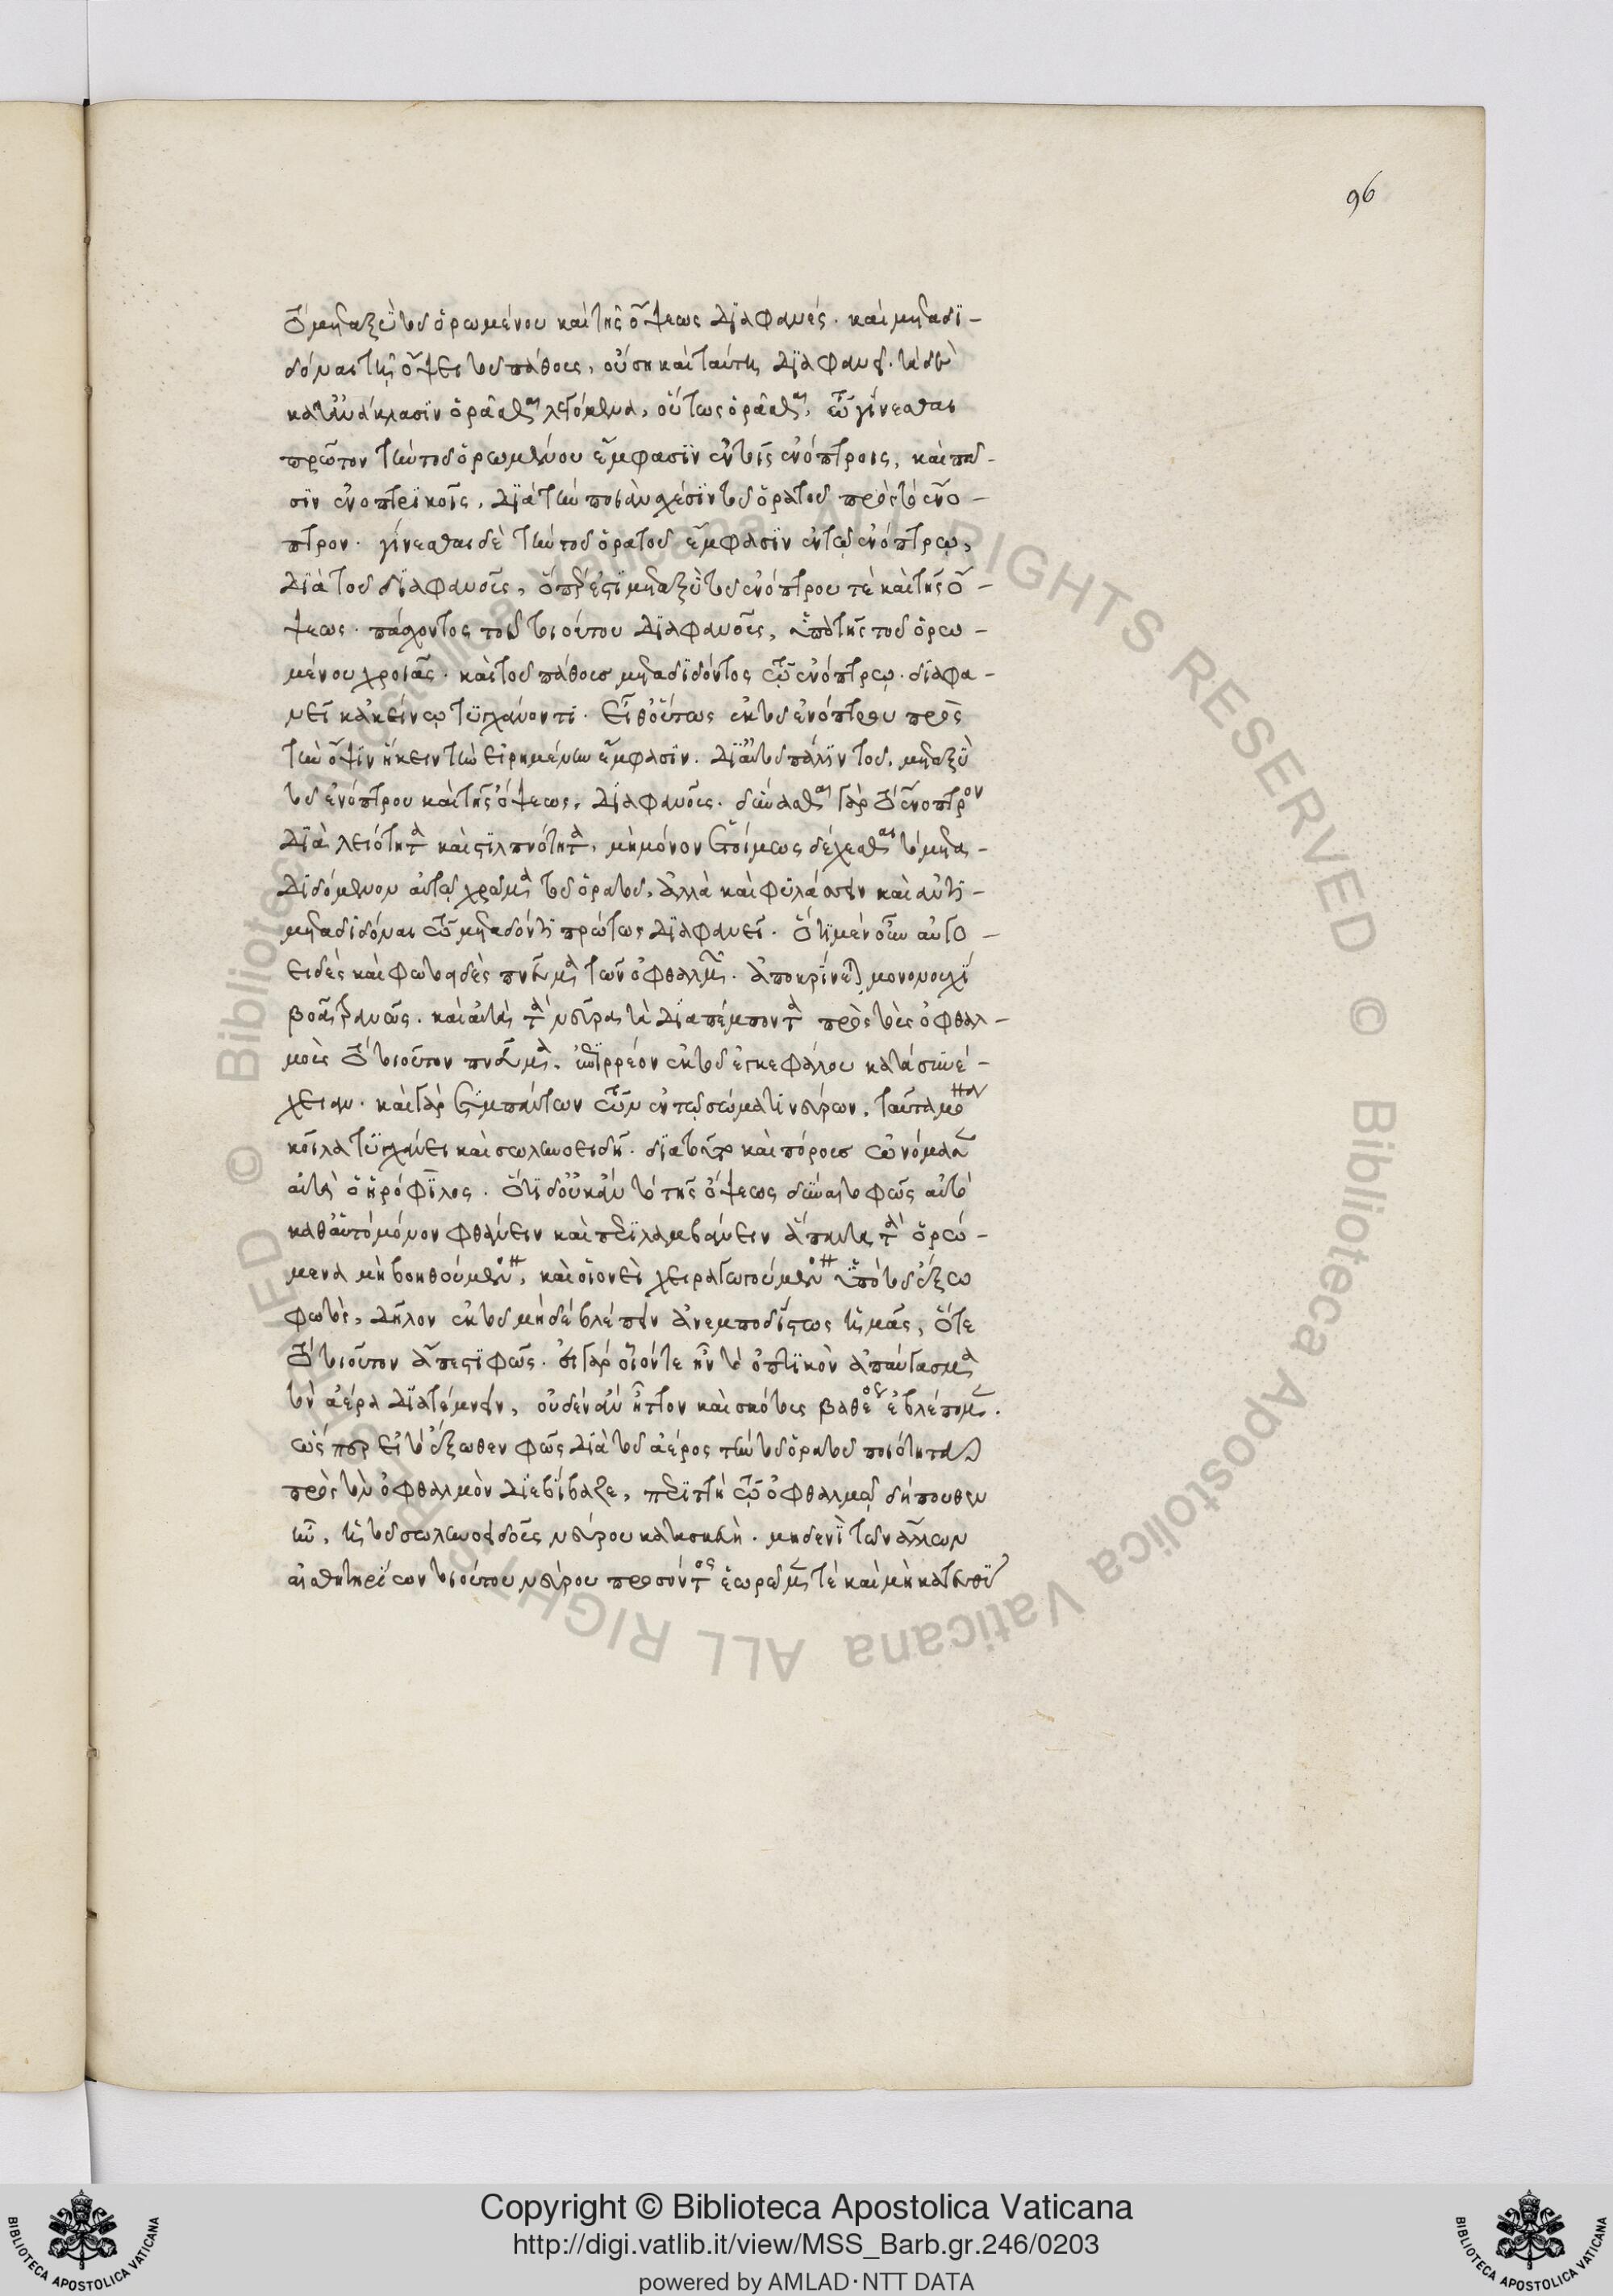 96
τὸ μεταξὺ τοῦ ὁρωμένου καὶ τῆς ὄψεως διαφανές. καὶ μεταδι-
δόναι τῇ ὄψει τοῦ πάθους, οὔσῃ καὶ ταύτῃ διαφανεῖ. τὰ δὲ
κατ' ἀνάκλασιν ὁρᾶσθαι λεγόμενα, οὕτως ὁρᾶσθαι, τῷ γίνεσθαι
πρῶτον τὴν τοῦ ὁρωμένου ἔμφασιν ἐν τοῖς ἐνόπτροις, καὶ πᾶ-
σιν ἐνοπτρικοῖς, διὰ τὴν ποιὰν σχέσιν τοῦ ὁρατοῦ πρὸς τὸ ἔνο-
πτρον. γίνεσθαι δὲ τὴν τοῦ ὁρατοῦ ἔμφασιν ἐν τῷ ἐνόπτρῳ,
διὰ τοῦ διαφανοῦς, ὅπερ ἐστὶ μεταξὺ τοῦ ἐνόπτρου τὲ καὶ τῆς ὄ-
ψεως. πάσχοντος τοῦ τοιούτου διαφανοῦς, ὑπὸ τῆς τοῦ ὁρω-
μένου χροιᾶς. καὶ τοῦ πάθους μεταδιδόντος τῷ ἐνόπτρῳ. διαφα-
νεῖ κἀκείνῳ τυγχάνοντι. εἶθ' οὕτως ἐκ τοῦ ἐνόπτρου πρὸς
τὴν ὄψιν ἥκειν τὴν εἰρημένην ἔμφασιν. διὰ τοῦ πάλιν τοῦ, μεταξὺ
τοῦ ἐνόπτρου καὶ τῆς ὄψεως, διαφανοῦς. δύνασθαι γὰρ τὸ ἔνοπτρον
διὰ λειότητα καὶ στιλπνότητα, μὴ μόνον ἑτοίμως δέχεσθαι τὸ μετα-
διδόμενον αὐτῷ χρῶμα τοῦ ὁρατοῦ, ἀλλὰ καὶ φυλάσσειν καὶ ἀντι-
μεταδιδόναι τῷ μεταδόντι πρώτως διαφανεῖ. ὅτι μὲν οὖν αὐγο-
ειδὲς καὶ φωτῶδες πνεῦμα τῶν ὀφθαλμῶν. ἀποκρίνεται μονονουχὶ
βοᾷ φανῶς. καὶ αὐτὰ τὰ νεῦρα τὰ διαπέμποντα πρὸς τοὺς ὀφθαλ-
μοὺς τὸ τοιοῦτον πνεῦμα. ἐπιρρέον ἐκ τοῦ ἐγκεφάλου κατὰ συνέ-
χειαν. καὶ γὰρ συμπάντων τῶν ἐν τῷ σώματι νεύρων, ταῦτα μόνον
κοῖλα τυγχάνει καὶ σωληνοειδῆ. διὰ τοῦτο καὶ πόρους ὠνόμασεν
αὐτὰ ὁ ἡρόφιλος. ὅτι δ' οὐκ ἂν τὸ τῆς ὄψεως δύναιτο φῶς αὐτὸ
καθ' αὑτὸ μόνον φθάνειν καὶ περιλαμβάνειν ἅπαντα τὰ ὁρώ-
μενα μὴ βοηθούμενον, καὶ οἱονεὶ χειραγωγούμενον ὑπὸ τοῦ ἔξω
φωτὸς, δῆλον ἐκ τοῦ μηδὲ βλέπειν ἀνεμποδίστως ἡμᾶς, ὅτε
τὸ τοιοῦτον ἄπεστι φῶς. εἰ γὰρ οἷόντε ἦν τὸ ὀπτικὸν ἀπαύγασμα
τὸν ἀέρα διατέμνειν, οὐδὲν ἂν ἧττον καὶ σκότους βαθέος ἐβλέπομεν.
ὥσπερ εἰ τὸ ἔξωθεν φῶς διὰ τοῦ ἀέρος τὴν τοῦ ὁρατοῦ ποιότητα
πρὸς τὸν ὀφθαλμὸν διεβίβαζε, περιττὴ τῷ ὀφθαλμῷ δήπουθεν
ἦν, ἡ τοῦ σωληνοειδοῦς νεύρου κατασκευὴ. μηδενὶ τῶν ἄλλων
αἰσθητηρίων τοιούτου νεύρου προσόντος ἑωρῶμεν τὲ καὶ μὴ
Copyright © Biblioteca Apostolica Vaticana
http://digi.vatlib.it/view/MSS_Barb.gr.246/0203
powered by AMLAD·NTT DATA
BIBLIOTECA APOSTOLICA VATICANA
BIBLIOTECA APOSTOLICA VATICANA
© Biblioteca Apostolica Vaticana ALL RIGHTS RESERVED © Biblioteca Apostolica Vaticana ALL RIGHTS RESERVED